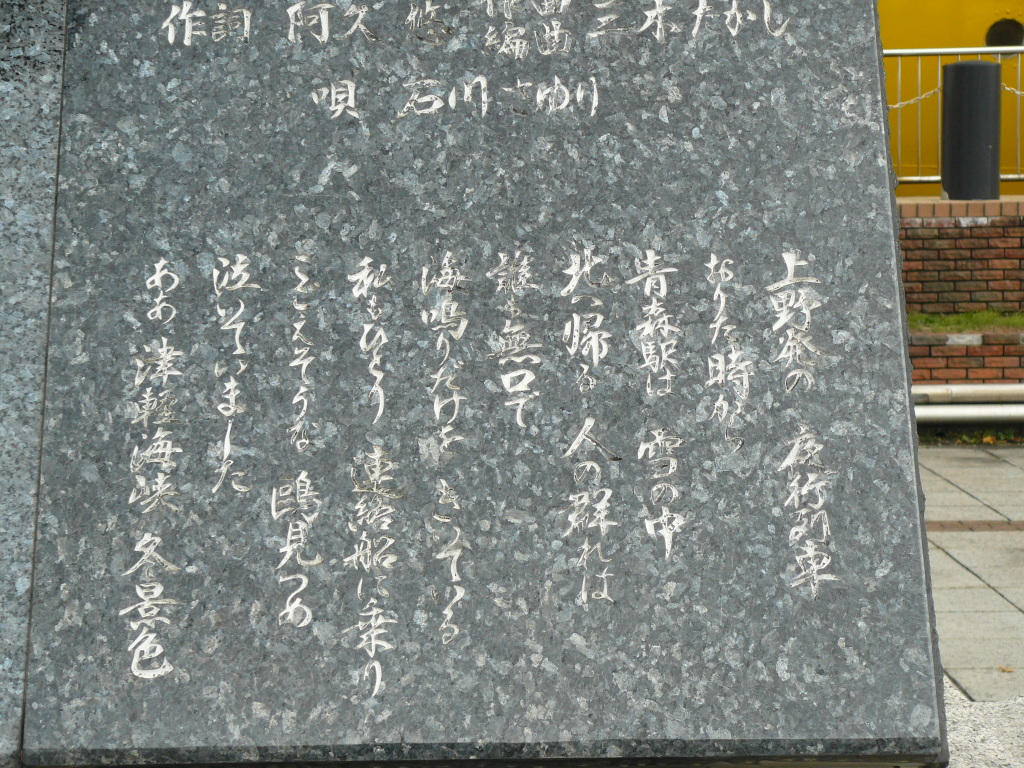 作詞 阿久 悠 作編曲 三木たかし
唄 石川さゆり
上野発の 夜行列車
おりた時から
青森駅は 雪の中
北へ帰る 人の群れは
誰も無口で
海鳴りだけを きいている
私もひとり 連絡船に乗り
こごえそうな 鴎見つめ
泣いていました
ああ 津軽海峡 冬景色